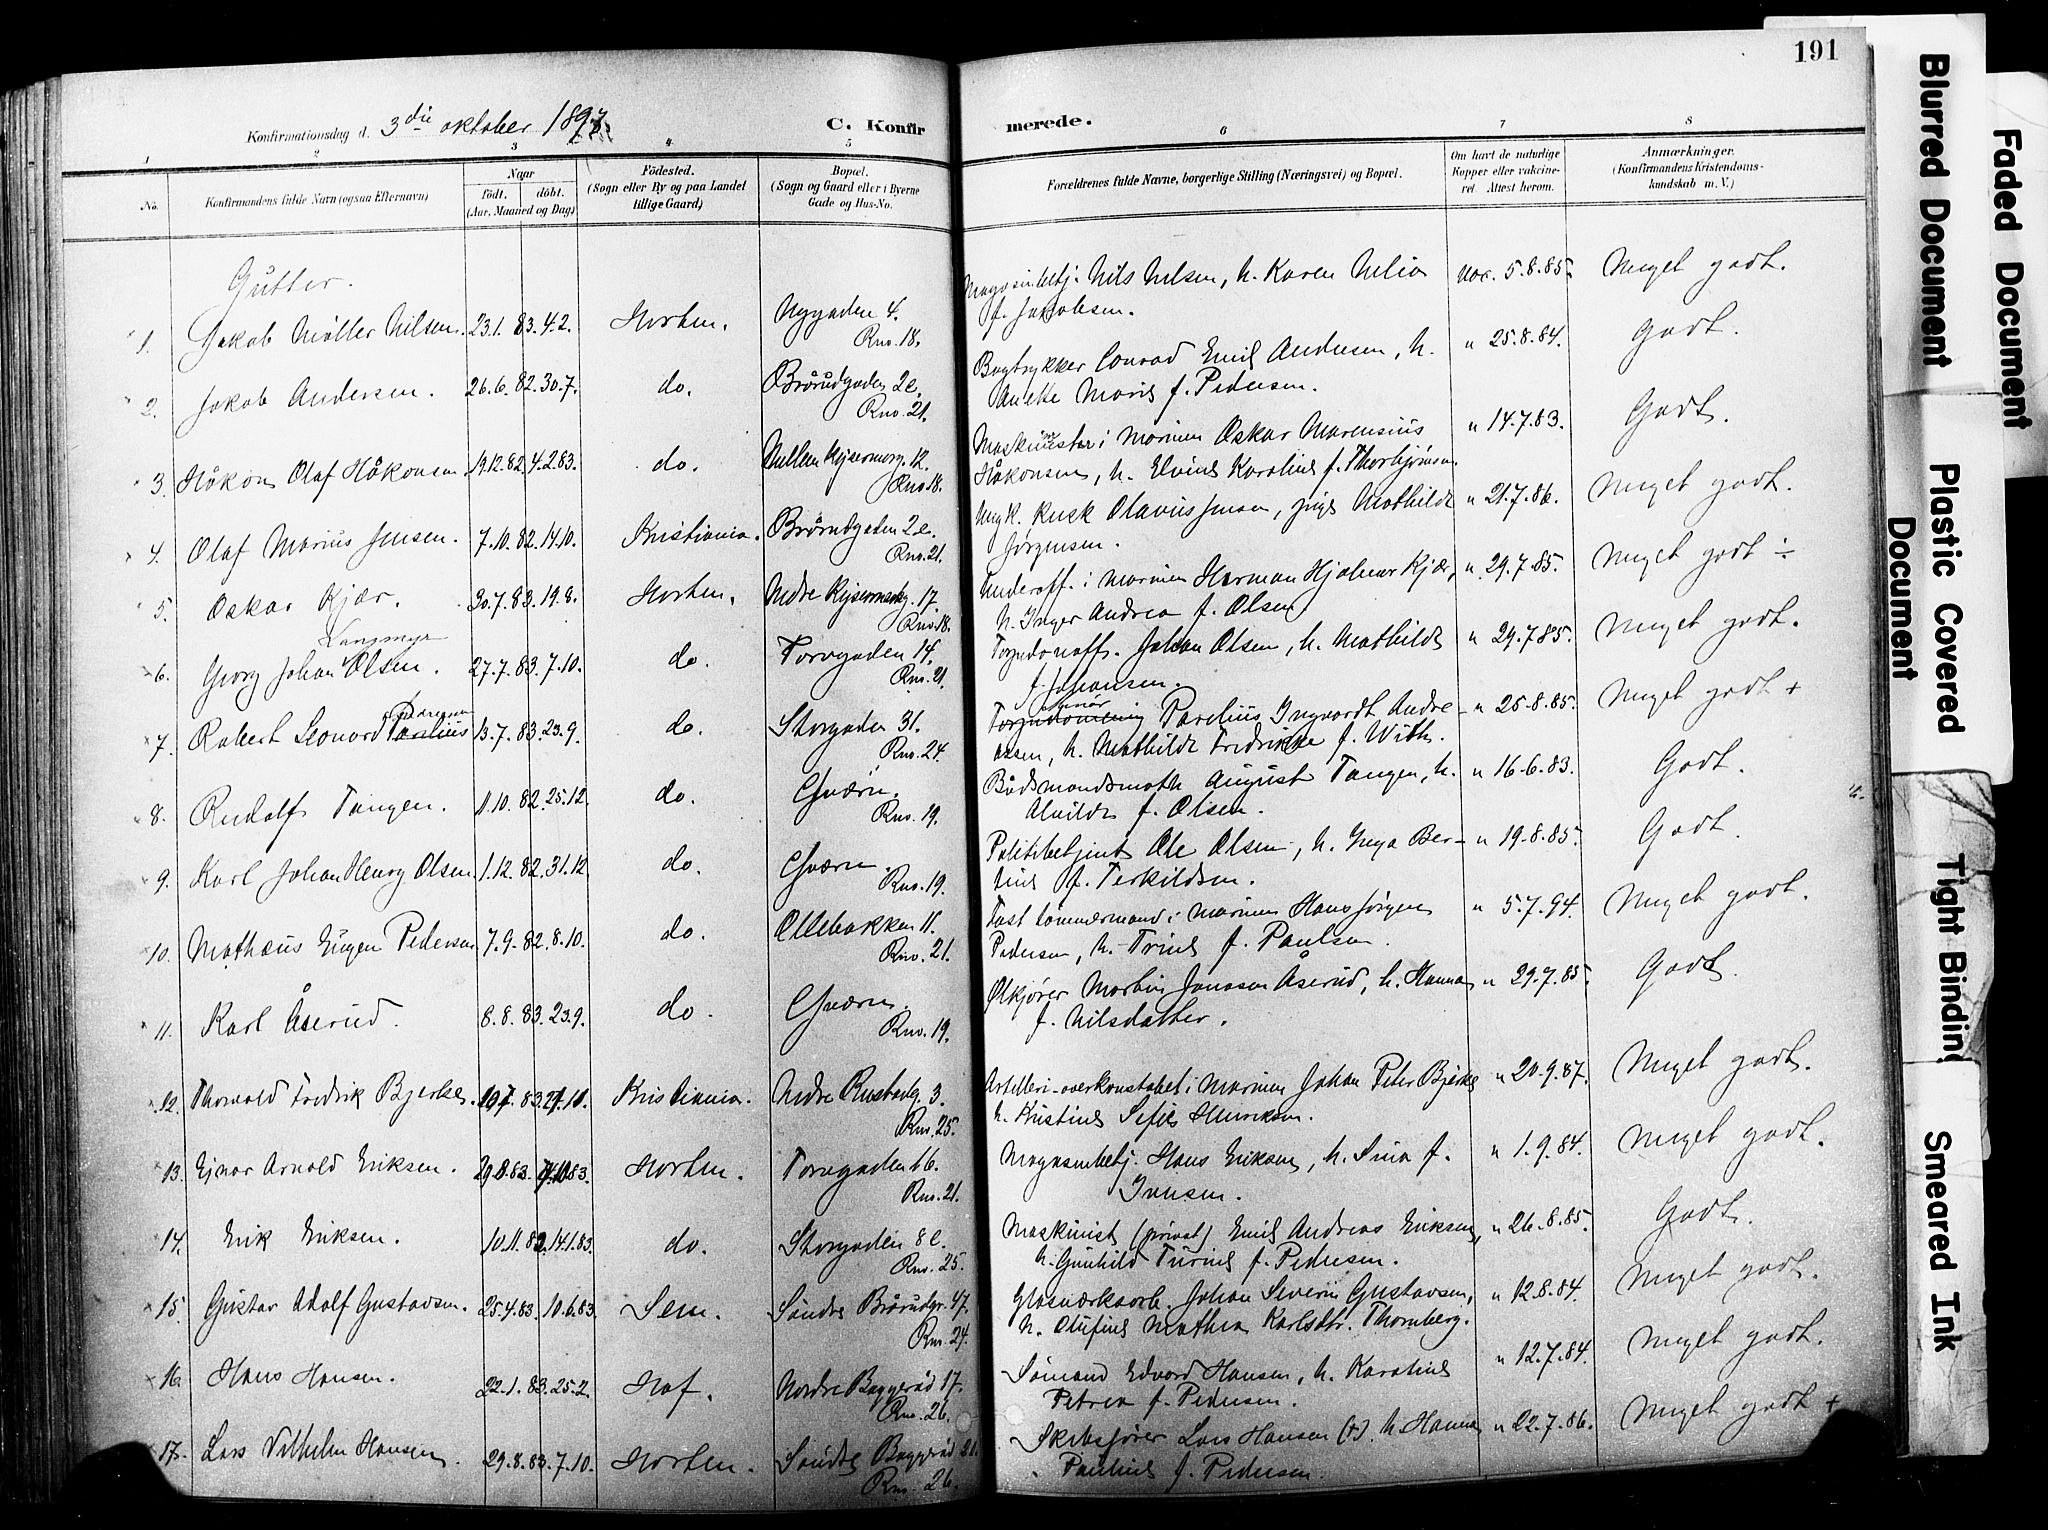 191
Konfirmationsdag d. 3die oktober 1897.
C. Konfirmerede.
1 2 3 4 5 6 7 8
No.
Konfirmandens fulde Navn (ogsaa Efternavn)
Naar
født. døbt.
(Aar, Maaned og Dag)
Fødested.
(Sogn eller By og paa Landet
tillige Gaard)
Bopæl.
(Sogn og Gaard eller i Byerne
Gade og Hus-No.
Forældrenes fulde Navne, borgerlige Stilling (Næringsvei) og Bopæl.
Om havt de naturlige
Kopper eller vakcine-
ret. Attest herom.
Anmærkninger.
(Konfirmandens Kristendoms-
kundskab m. V.)
Gutter.
1. Jakob Möller Nilsen. 23.1.83. 4.2. Horten. Nygaden 4. Rno. 18. Magasinbetj. Nils Nilsen, h. Karen Nelia f. Jakobsen. vac. 5.8.85. Meget godt.
2. Jakob Andersen. 26.6.82. 30.7. do. Brårudgaden 2e. Rno. 21. Bogtrykker Conrad Emil Andersen, h. Anette Marie f. Pedersen. " 25.8.84. Godt.
3. Håkon Olaf Håkonsen 19.12.82. 4.2.83. do. Mellem Keisermarg. 12. Rno. 18. i Marinen Oskar Marensius Håkonsen, h. Elvine Karoline f. Thorbjörnsen. " 14.7.83. Godt.
4. Olaf Marius Jensen. 7.10.82. 14.10. Kristiania. Brårudgaden 2e. Rno. 21. Ungk. kusk Olavus Jensen, pige Mathilde Jørgensen. " 21.7.86. Meget godt.
5. Oskar Kjær. 30.7.83. 19.8. Horten. Nedre Keisermarkg. 17. Rno. 18. Underoff. i Marinen Herman Hjalmar Kjær, h. Inger Andrea f. Olsen " 29.7.85. Meget godt ÷
Langmyr
6. Georg Johan Olsen. 27.7.83. 7.10. do. Torvgaden 14. Rno. 21. Torpedounoff. Johan Olsen, h. Mathilde f. Johansen. " 29.7.85. Meget godt.
7. Robert Leonard Parelius 13.7.83. 23.9. do. Storgaden 31. Rno. 24. Parelius Ingvardt Andreassen, h. Mathilde Fredrikke f. With. " 25.8.85. Meget godt +
8. Rudolf Tangen. 11.10.82. 25.12. do. Gværn. Rno. 19. Bådsmandsmath August Tangen, h. Alvilde f. Olsen. " 16.6.83. Godt.
9. Karl Johan Henry Olsen. 1.12.82. 31.12 do. Gværn. Rno. 19. Politibetjent Ole Olsen, h. Inga Bertine f. Terkildsen. " 19.8.85. Godt.
10. Mathæus Eugen Pedersen 7.9.82. 8.10. do. Ollebakken 11. Rno. 21. Fast tömmermand i Marinen Hans Jörgen Pedersen, h. Trine f. Paulsen. " 5.7.94. Meget godt.
11. Karl Åserud. 8.8.83. 23.9. do. Gværn. Rno. 19. Ølkjører Martin Jonassen Åserud, h. Hanna f. Nilsdatter. " 29.7.85. Godt.
12. Thorvald Fredrik Bjerke. 83. Kristiania. Nedre Rustadg. 3. Rno. 25. Artilleri-overkonstabel i Marinen Johan Peter Bjerke h. Kristine Sofie Henriksen. " 20.9.87. Meget godt.
13. Ejnar Arnold Eriksen. 29.8.83. Horten. Torvgaden 16. Rno. 21. Magasinbetj. Hans Eriksen, h. Sina f. Iversen. " 1.9.84. Meget godt.
14. Erik Eriksen. 10.11.82. 14.1.83. do. Storgaden 8e. Rno. 25. Maskinist (privat) Emil Andreas Eriksen, h. Gunhild Turine f. Pedersen. " 26.8.85. Godt.
15. Gustav Adolf Gustavsen. 25.4.83. 10.6.83. Sem. Søndre Brårudgt. 47. Rno. 24. Glasværksarb. Johan Severin Gustavsen, h. Olufine Mathea Karlsdtr. Thornberg. " 12.8.84. Meget godt.
16. Hans Hansen. 22.1.83. 25.2. Hof. Nordre Baggerød 17. Rno. 26. Sømand Edvard Hansen, h. Karoline Petrea f. Pedersen. " 12.7.84. Meget godt.
17. Lars Vilhelm Hansen. 29.8.83. 7.10. Horten. Søndre Baggerød 21. Rno. 26. Skibsfører Lars Hansen (+). h. Hanna Pauline f. Pedersen. " 22.7.86. Meget godt +
Faded Document
Blurred Document
Plastic Covered Document
Tight Binding
Smeared Ink